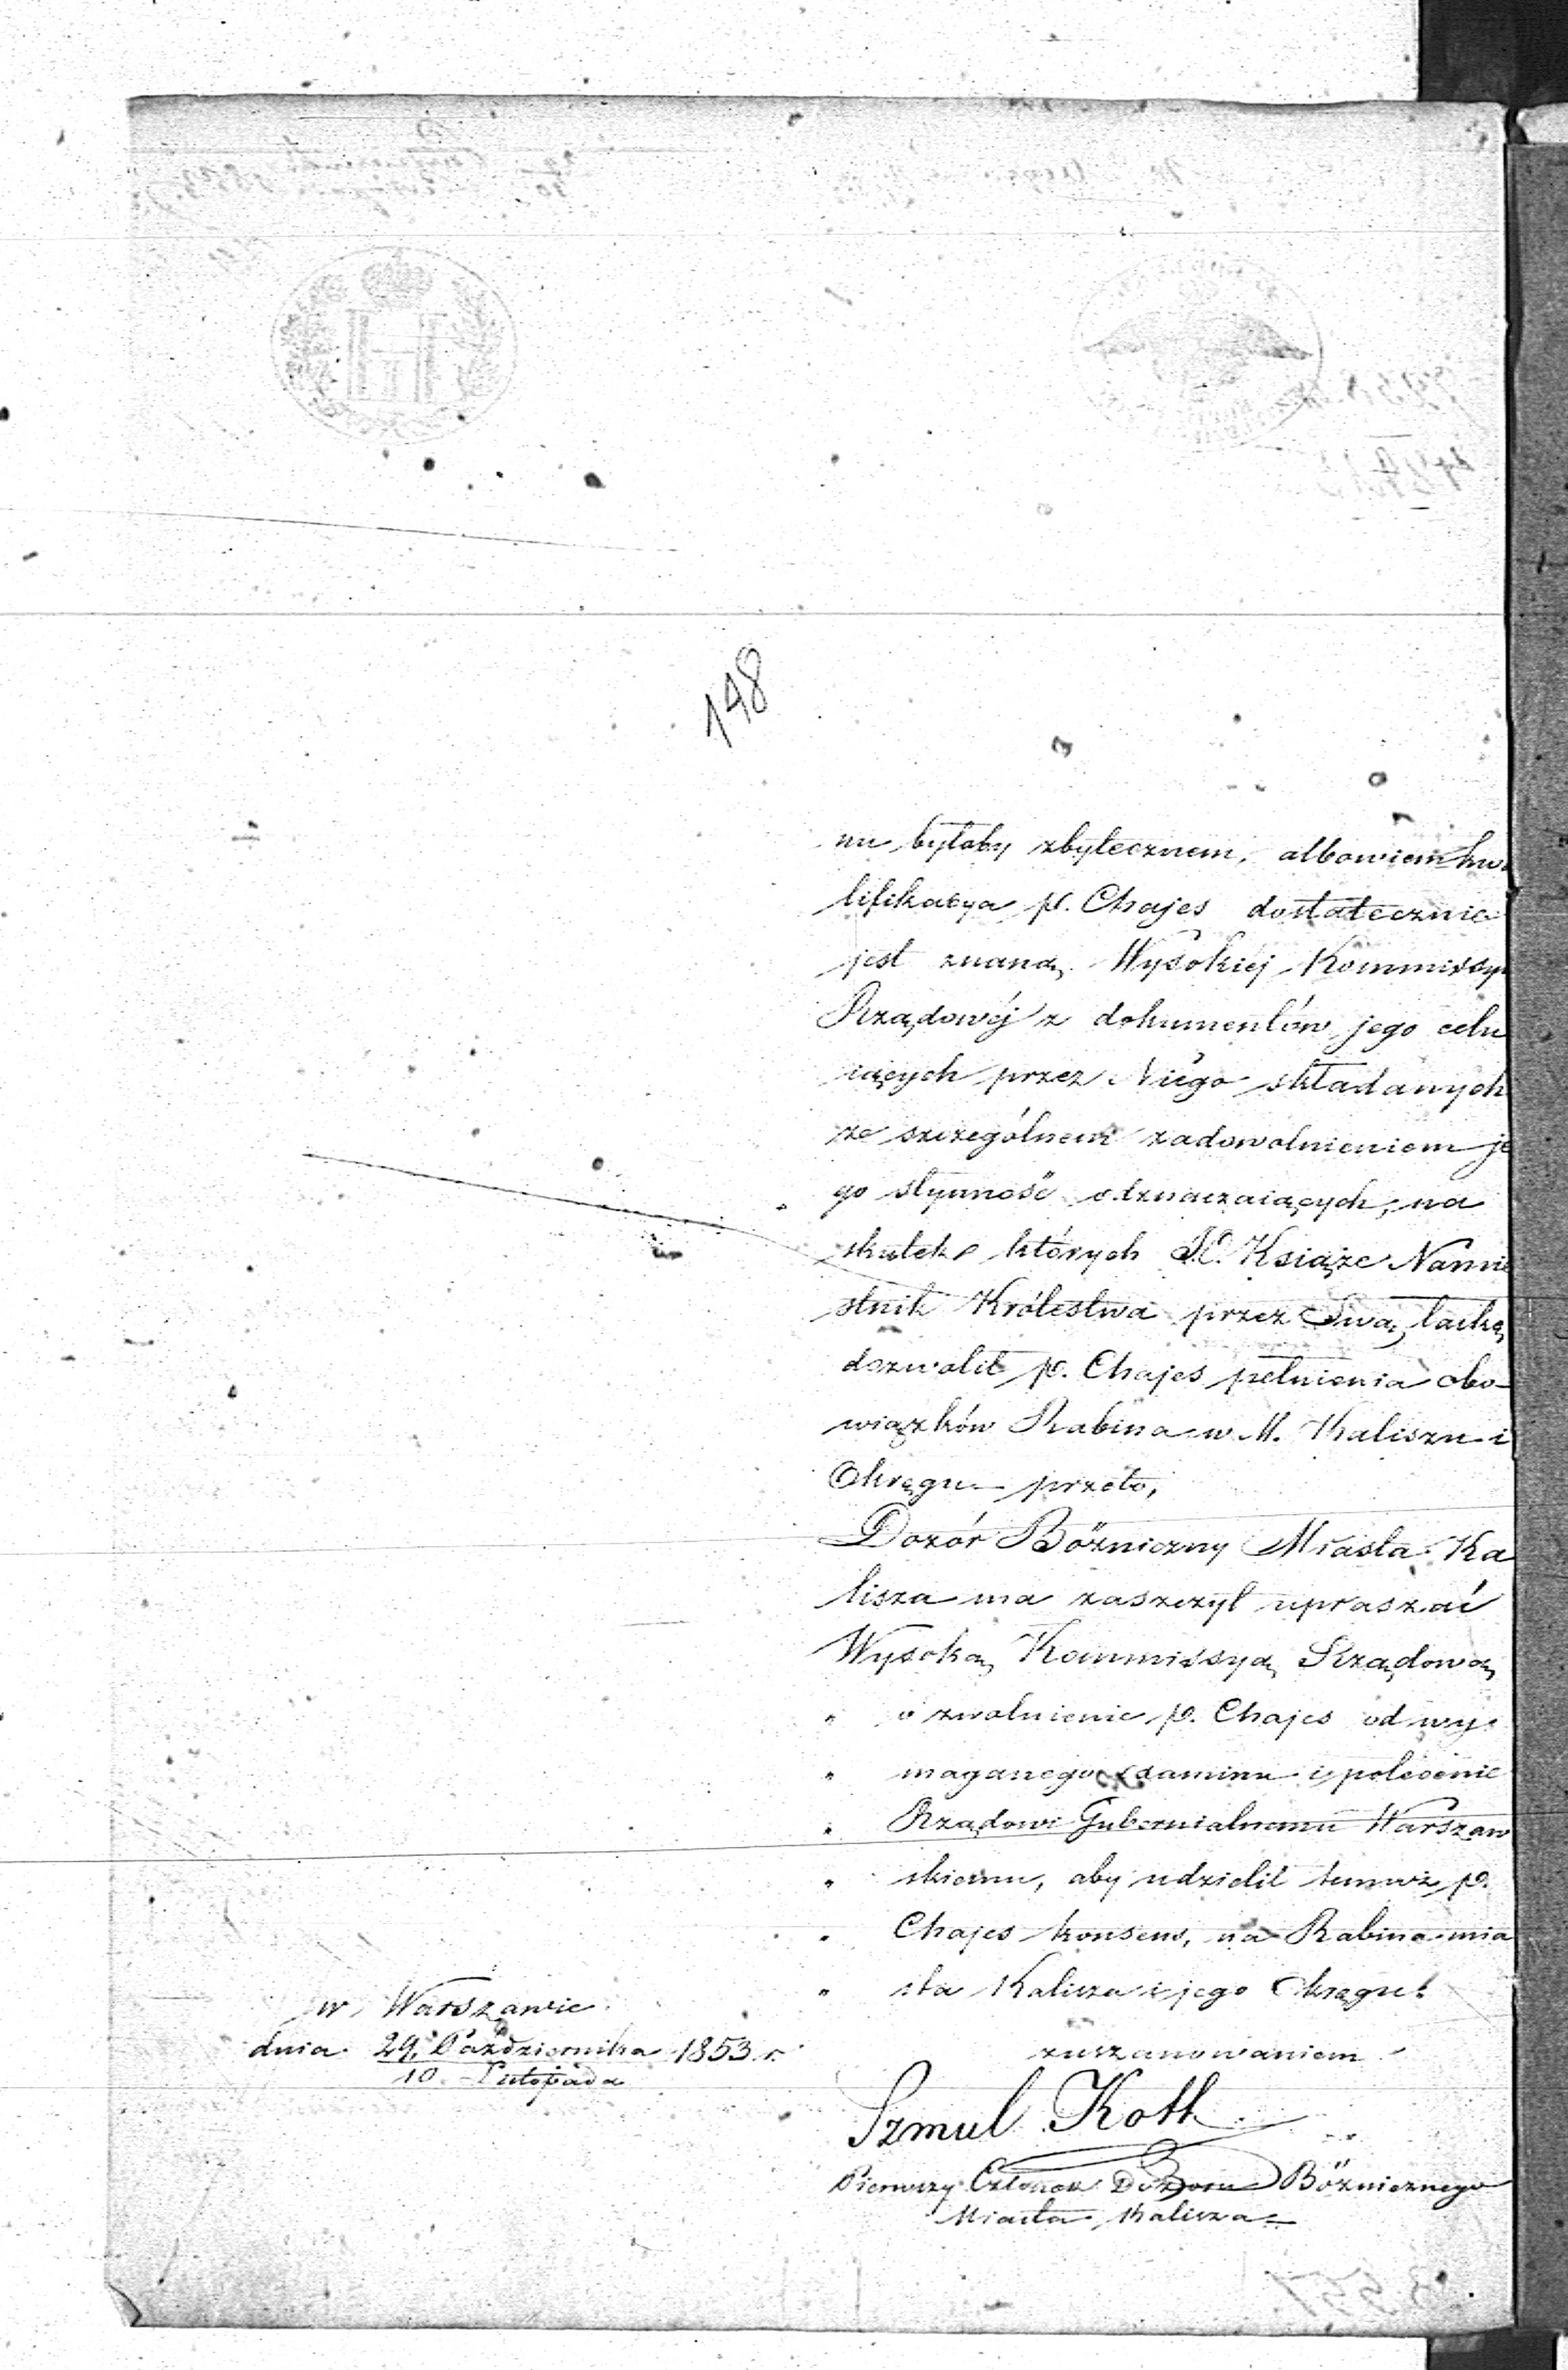 148
nu byłoby zbytecznem, albowiem kwa
lifikacya p. Chajes dostatecznie
jest znaną Wysokiéj Kommissyi
Rządowéj z dokumentów jego celu
iących przez Niego składanych
ze szczególnem zadowolnieniem je
go słynność odznaczaiących, na
skutek których Książe Namie
stnik Królestwa przez Swą łaskę
dozwolił p. Chajes pełnienia obo-
wiązków Rabina w M. Kaliszu i
Okręgu – przeto,
Dozór Bóżniczny Miasta Ka
lisza ma zaszczyt upraszać
Wysoką Kommissyą Rządową
" o zwolnienie p. Chajes od wy-
" maganego examinu i polecenie
" Rządowi Gubernialnemu Warszaw
" skiemu, aby udzielił temuż p.
" Chajes konsens, na Rabina mia
" sta Kalisza i jego Okręgu.
w Warszawie
dnia 29. Października 1853 r.
10 Listopada
zuszanowaniem
Szmul Kott
Pierwszy Członek Dozoru Bóżnicznego
Miasta Kalisza